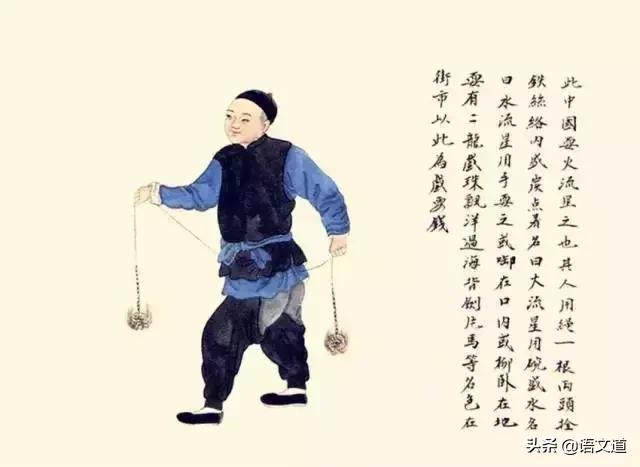 此中國耍火流星之也其人用繩一根兩頭拴
鉄絲絡內盛炭点着名曰大流星用碗盛水名
曰水流星用手耍之或啣在口內或卧在地
耍有二龍戲珠觀洋過海背劍片馬等名色在
街市以此為戲要錢
头条 @语文道